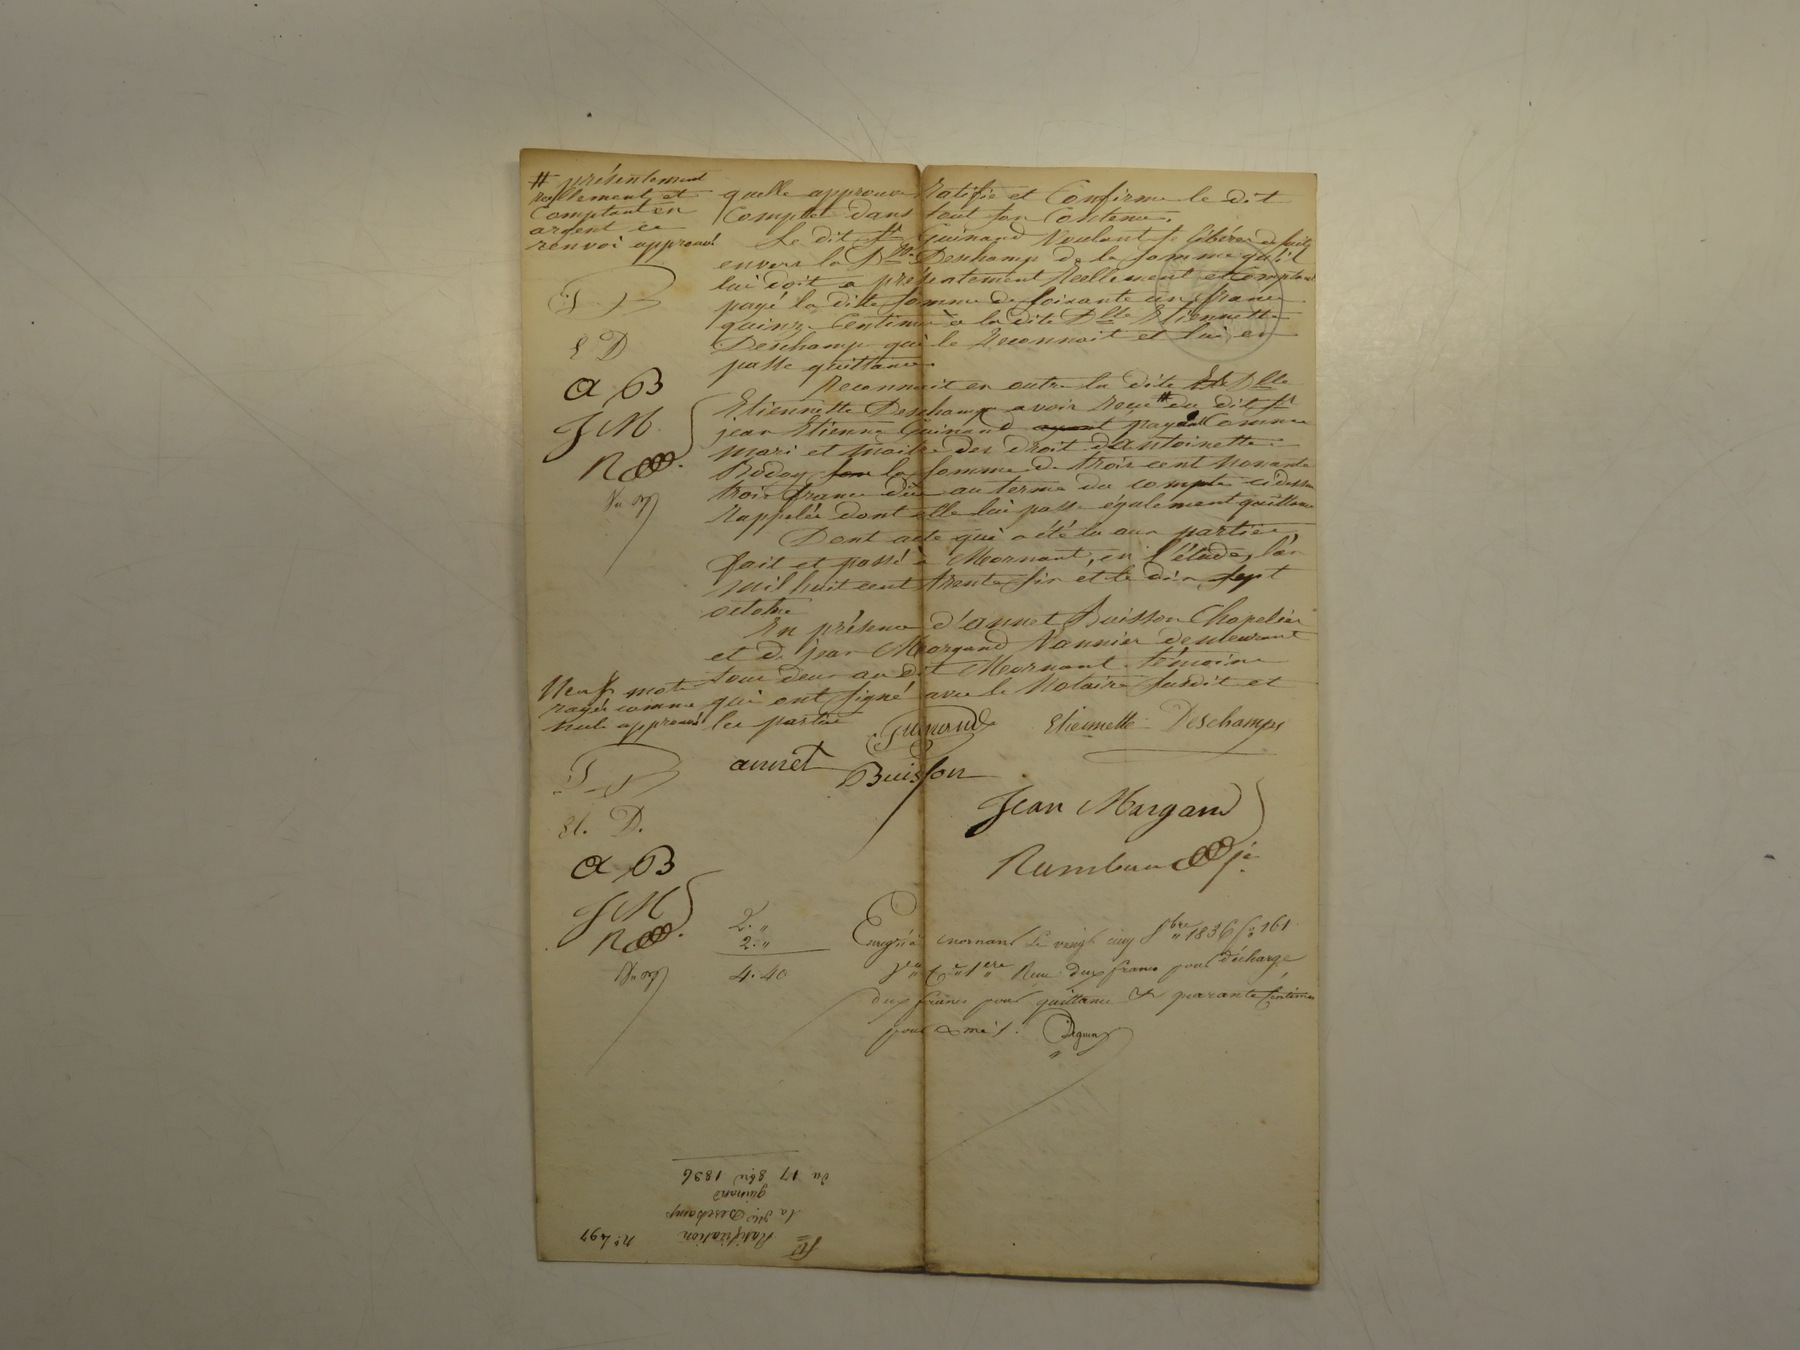 # présentement
réellement et
Comptant en
argent ce
renvoi approuvé
E D
a B
J M.
R
quelle approuve Ratifie et Confirme le dit
Compte dans tout son Contenu.
Le dit Sr Guinand Voulant se libérer de suite
envers la Dlle Deschamp de la somme qu'il
lui doit a présentement Réellement et Comptant
payé la dite somme de soixante un francs
quinze Centimes a la dite Dlle Etiennette
Deschamp qui le Reconnoit et lui en
passe quittance.
Reconnait en outre la dite Dlle
Etiennette Deschamp avoir Reçu # du dit Sr
jean Etienne Guinand ayant payé Comme
mari et maitre des droit d'antoinette
la somme de trois cent Nonante
trois francs dûe au terme du compte cidessus
Rappelée dont elle lui passe également quittance
Dont acte qui a été lu aux parties
fait et passé à Mornant, en l'étude, l'an
mil huit cent trente six et le dix sept
octobre
En présence d'annet Buisson Chapelier
et de jean Morgand Vannier demeurant
tous deux au dit Mornant témoins
qui ont signé avec le Notaire susdit et
les parties
Neuf mots
rayés comme
nuls approuvé
Guinand Etiennette Deschamps
annet Buisson
Jean Margand
Et. D.
a B
J M
R
2. "
2. "
4. 40
Enregistré à Mornant le vingt cinq 8bre 1836 fo 161
Reçu deux francs pour décharge
deux francs pour quittance et quarante centimes
pour
No 497
Ratification
la Dlle Deschamp
guinand
du 17 8bre 1836